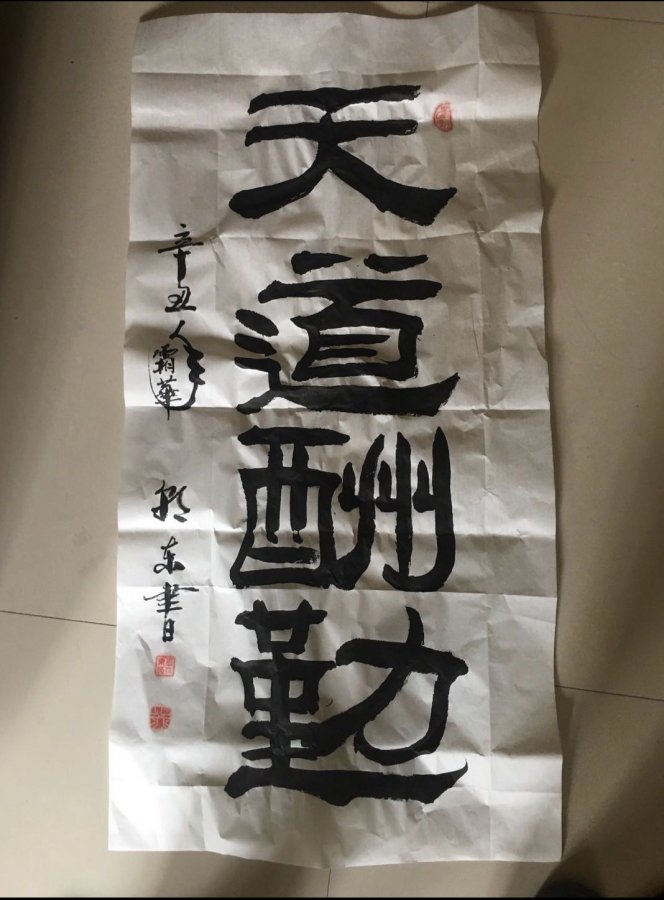 天道酬勤
辛丑年霜華 东書